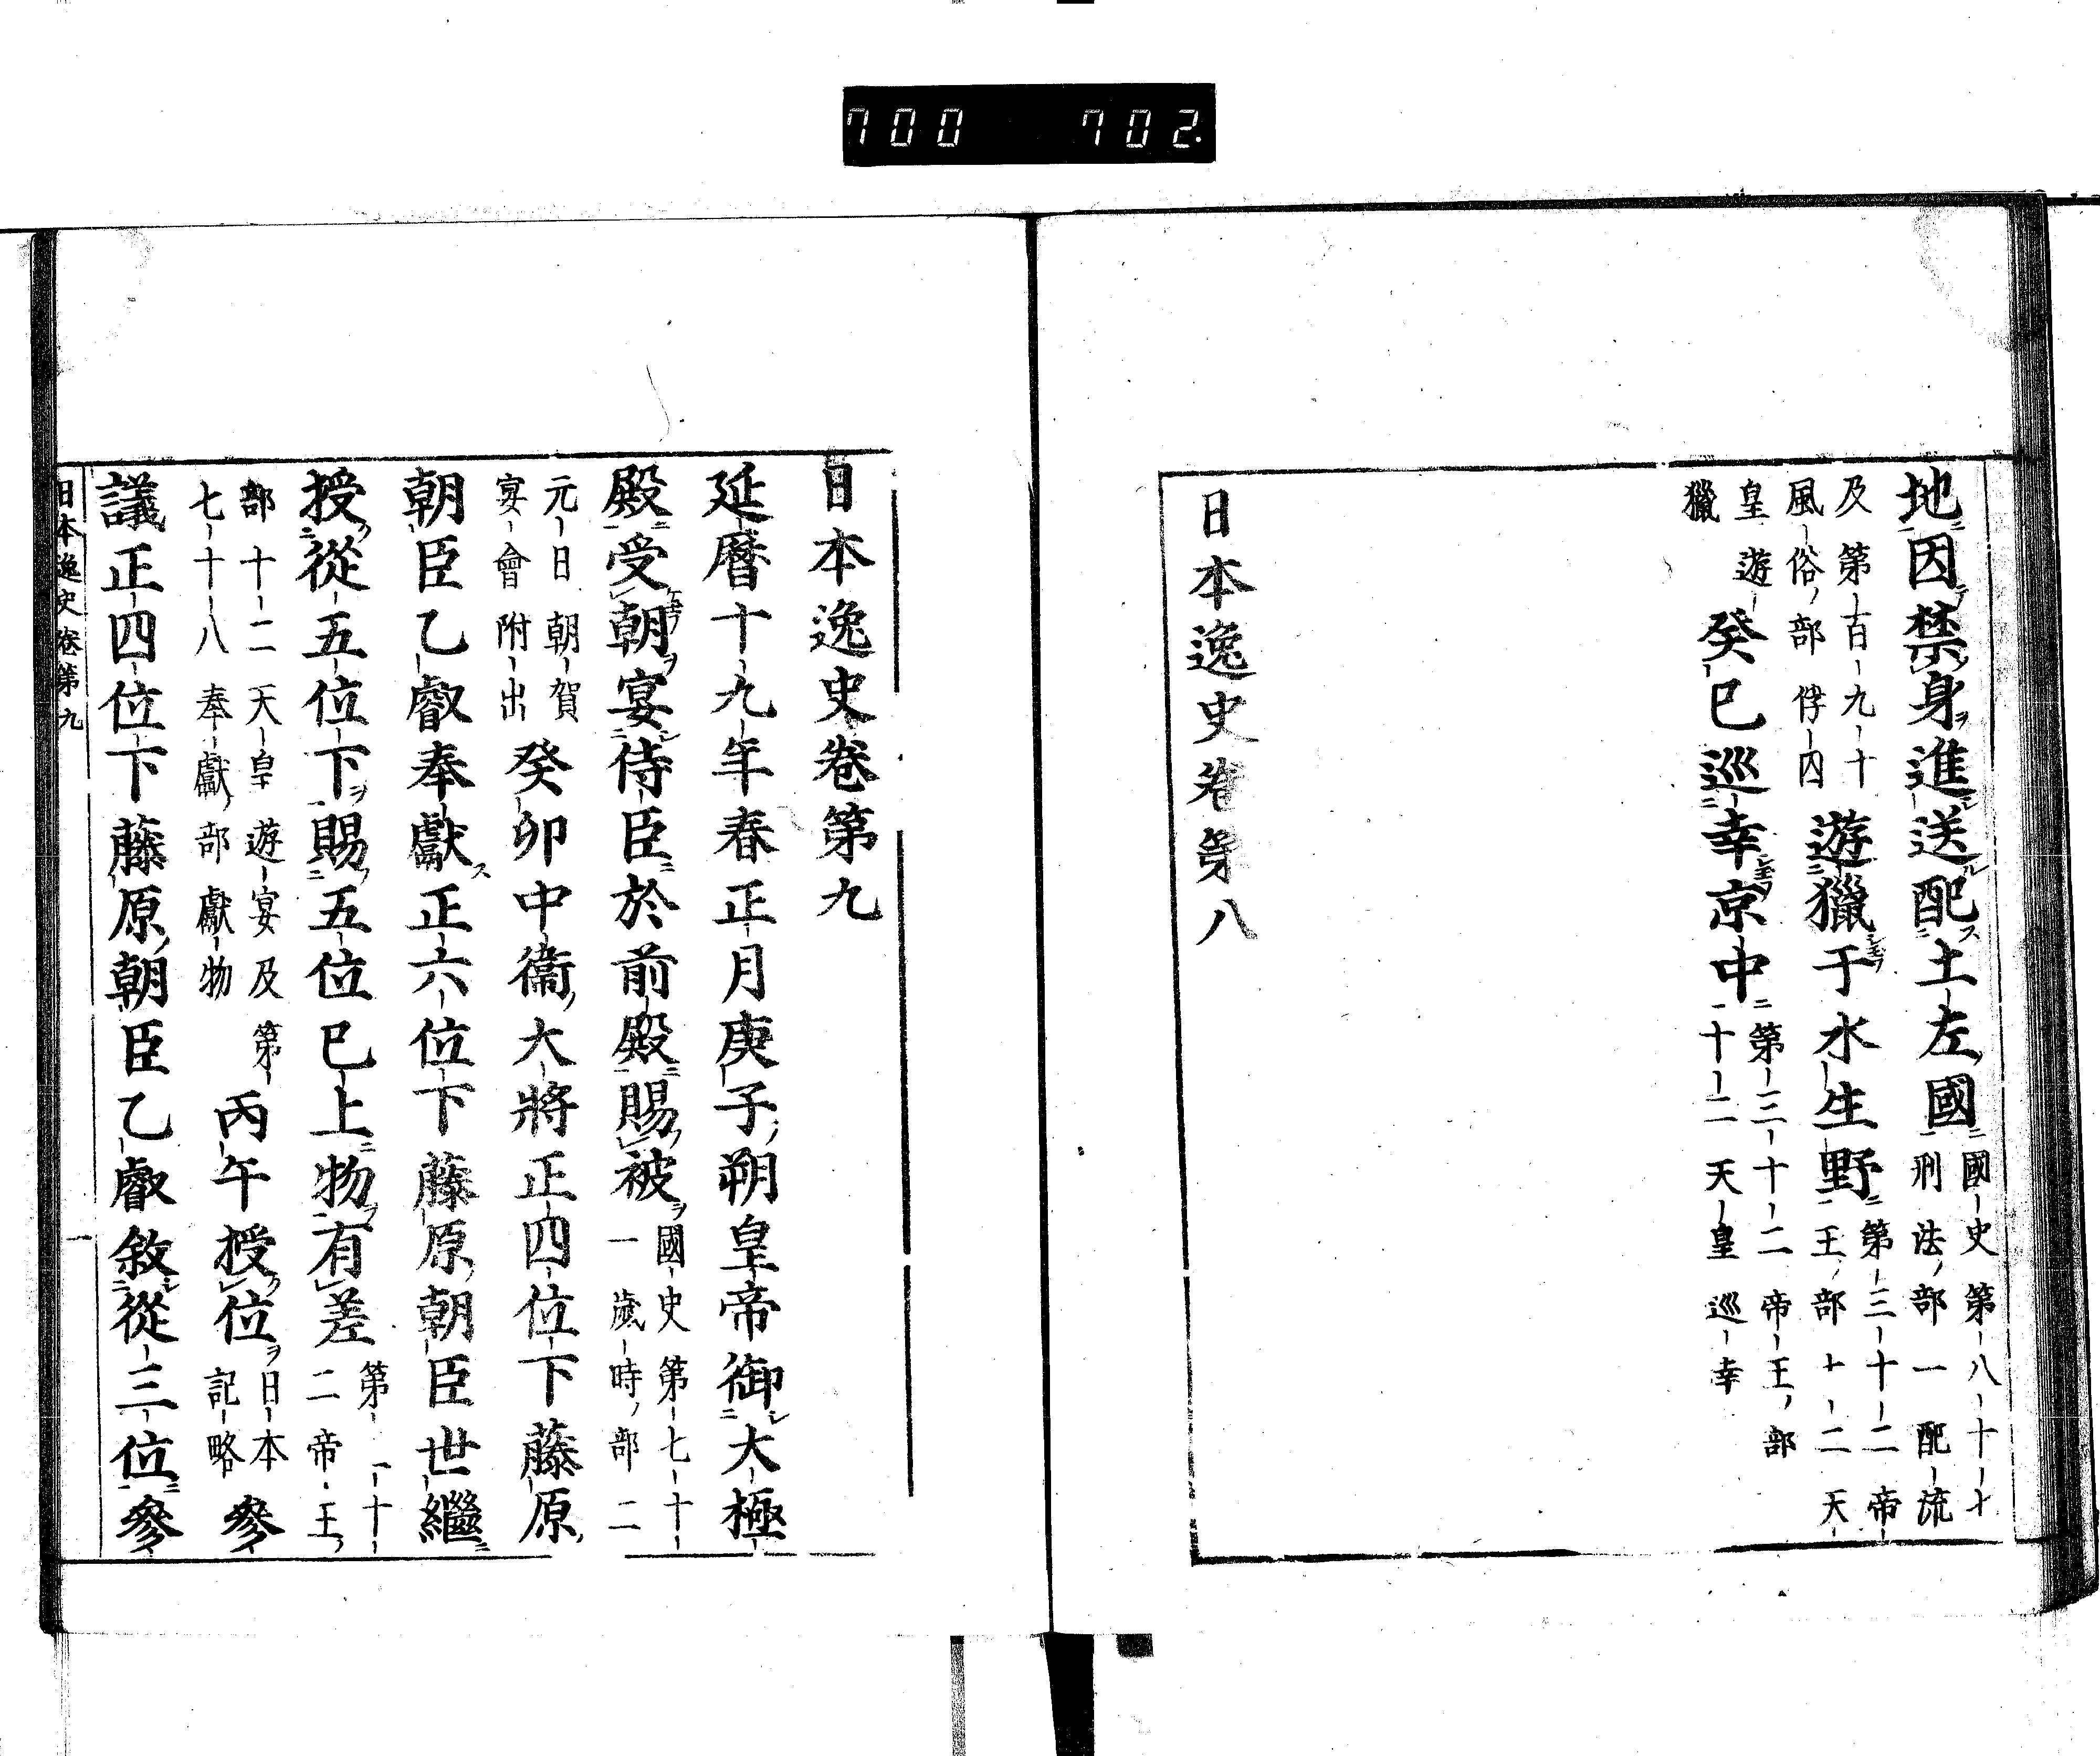 700 702
地因禁身進送配土左國 國史第八十七
刑法部一配流
及第百九十
風俗部俘内 遊獵于水生野 第三十二帝
王部十二天
皇遊
獵 癸巳巡幸京中 第三十二帝王部
十二天皇巡幸
日本逸史卷第八
日本逸史卷第九
延曆十九年春正月庚子朔皇帝御大極
殿受朝宴侍臣於前殿賜被 國史第七十
一歲時部二
元日朝賀
宴會附出 癸卯中衞大將正四位下藤原
朝臣乙叡奉獻正六位下藤原朝臣世繼
授從五位下賜五位已上物有差 第三十
二帝王
部十二天皇遊宴及第
七十八奉獻部獻物 丙午授位 日本
記略 參
議正四位下藤原朝臣乙叡敘從三位參
日本逸史卷第九 一